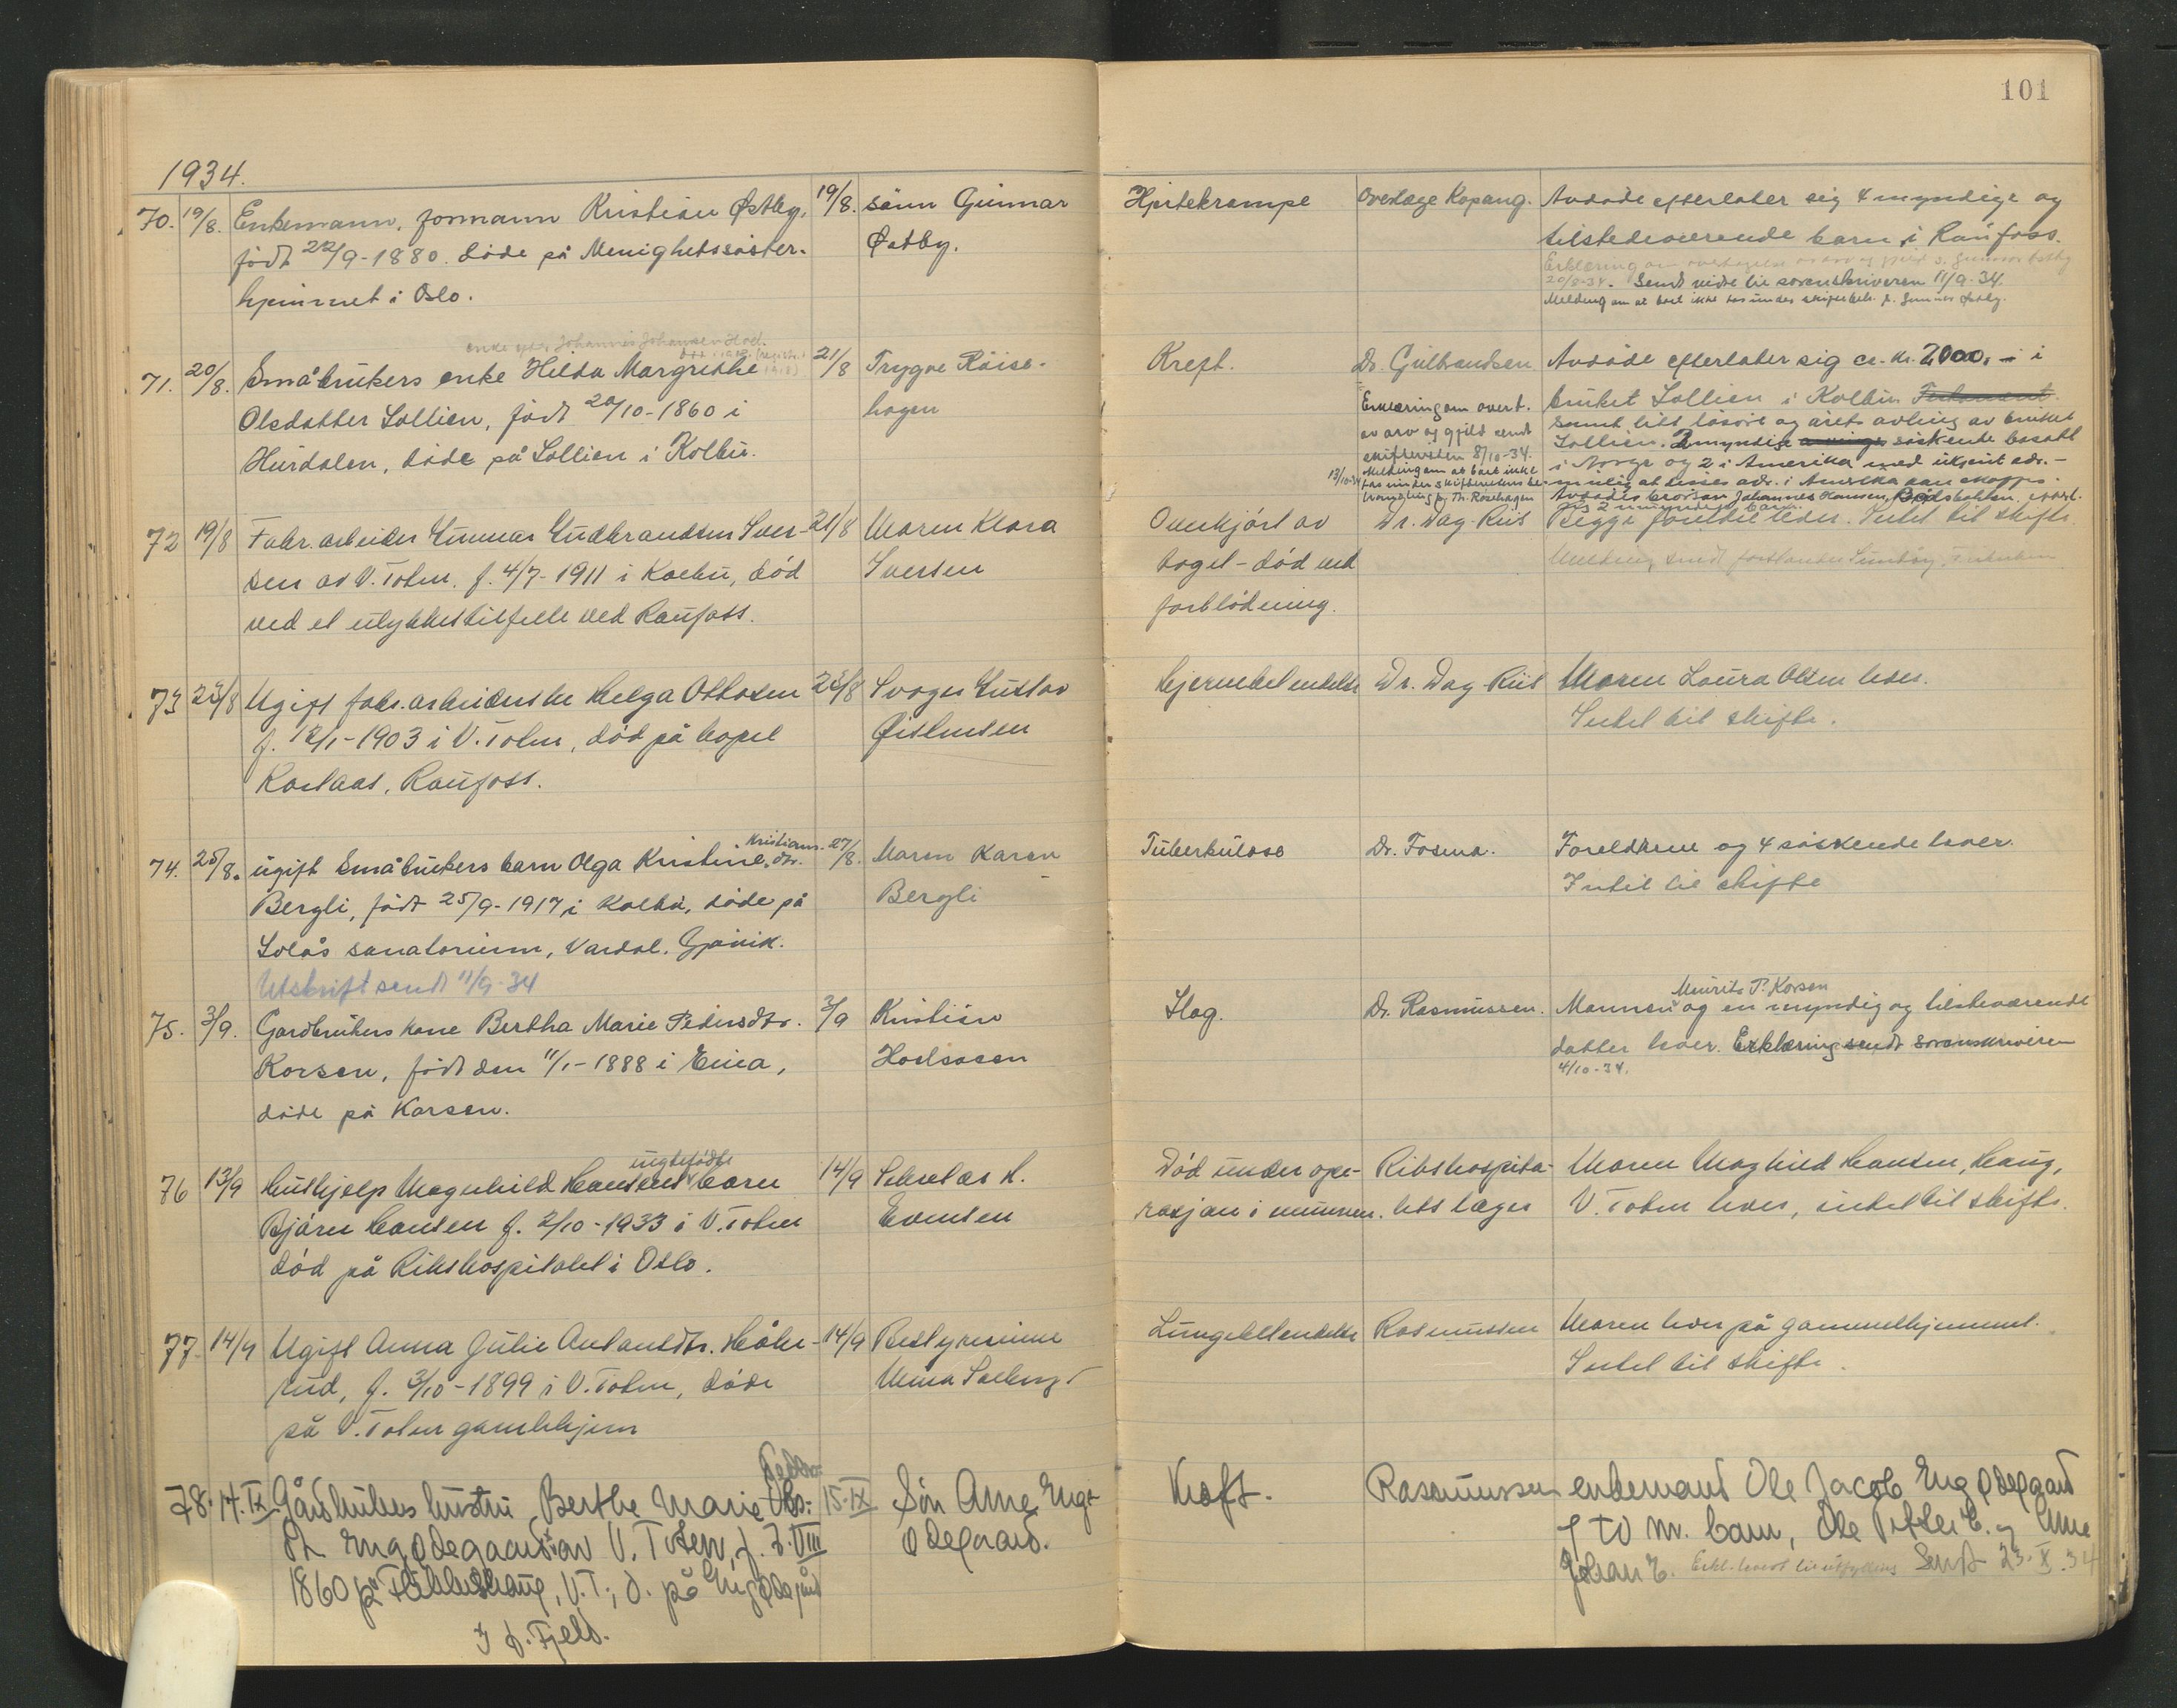 101
1934.
70. 19/8. Enkemann, formann Kristian Østby, 19/8. sønn Gunnar
født 22/9-1880. døde på Menighetssøster- Østby.
hjemmet i Oslo.
Hjertekrampe Overlæge Kopang. Avdøde efterlater sig 4 myndige og
tilstedeværende barn i Raufoss.
Erklæring om overtagelse av arv og gjeld s. Gunnar Østby
20/8-34. Sendt videre til sorenskriveren 11/9-34.
Melding om at boet ikke tas under skiftebeh. f. Gunnar Østby.
enke efter Johannes Johansen
71. 20/8. Småbrukers enke Hilda Margrethe 21/8 Trygve Røise-
Olsdatter Sollien, født 20/10-1860 i hagen
Hurdalen, døde på Sollien i Kolbu.
Kreft. Dr. Gulbrandsen Avdøde efterlater sig ca. kr. 2000,- i
bruket Sollien i Kolbu. Testament
samt litt løsøre og årets avling av bruket
Sollien. 2 myndige søskende bosatt
i Norge og 2 i Amerika med ukjent adr. -
mulig at disses adr. i Amerika kan skaffes.
Avdødes brorsønn Johannes Hansen,
Erklæring om overt.
av arv og gjeld sendt
skifteretten 8/10-34.
13/10-34 Melding om at boet ikke
tas under skifterettens be-
handling
72 19/8 Fabr. arbeider Gunnar Gudbrandsen Iver- 21/8 Moren Klara
sen av V. Toten. f. 4/7-1911 i Kolbu, død Iversen
ved et ulykkestilfelle ved Raufoss.
Overkjørt av Dr. Dag Riis Begge foreldre lever. Intet til skifte.
toget - død ved Melding sendt
forblødning.
73 23/8 Ugift fabr. arbeiderske Helga Ottosen 28/8 Svoger Gustav
f. 12/1-1903 i V. Toten, død på Østensen
Raufoss.
Hjernebetendelse Dr. Dag Riis Moren Laura Olsen lever.
Intet til skifte.
74. 25/8. ugift Småbrukers barn Olga Kristine Kristians. dtr. 27/8. Moren Karen
Bergli, født 25/9-1917 i Kolbu, døde på Bergli
Solås sanatorium, Vardal. Gjøvik.
Utskrift sendt 11/9-34
Tuberkulose Dr. Fosmo. Foreldrene og 4 søskende lever.
Intet til skifte
75. 3/9. Gardbrukers kone Bertha Marie Pedersdtr. 3/9 Kristian
Korsen, født den 11/1-1888 i Eina,
døde på Korsen.
Slag. Dr. Rasmussen. Mannen Mauritz P. Korsen og en myndig og tilstedeværende
datter lever. Erklæring sendt sorenskriveren
4/10-34.
76 13/9 Hushjelp Magnhild Hansens uegtefødte barn 14/9 Sekretær H.
Bjørn Hansen f. 2/10-1933 i V. Toten Evensen
død på Rikshospitalet i Oslo.
Død under ope- Rikshospita- Moren Magnhild Hansen, Haug,
rasjon i munnen. lets læger V. Toten lever, intet til skifte.
77. 14/9 Ugift Anna Julie Antonsdtr. Håke- 14/9 Bestyrerinne
rud, f. 3/10-1899 i V. Toten, døde
på V. Toten gamlehjem
Lungebetendelse Rasmussen Moren lever på gammelhjemmet.
Intet til skifte.
78. 14.IX Gårdbrukers hustru Berthe Marie 15.IX Søn Arne Eng-
Engødegaard av V. Toten, f. 7.VIII ødegaard.
1860 på V.T.; d. på Engødegård
Kreft. Rasmussen enkemand Ole Jacob Engødegaard
og to m. barn, Ole Petter E. og Arne
Johan E. Erkl. levert til utfylling Sendt 23.X.34